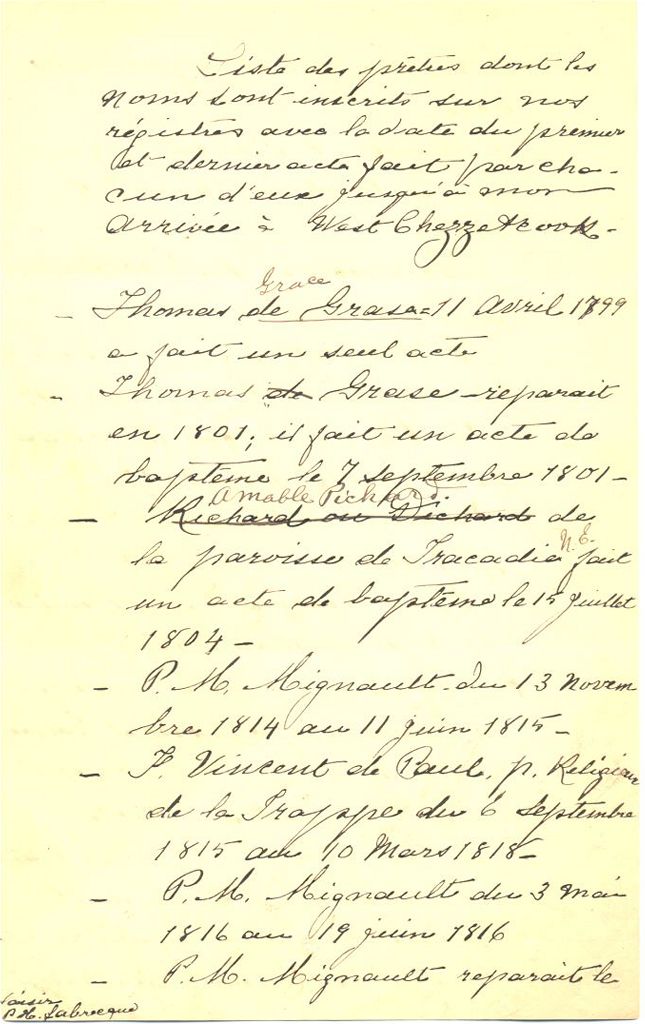 Liste des prêtres dont les
noms sont inscrits sur nos
régistres avec la date du premier
et dernier acte fait par cha-
cun d'eux jusqu'à mon
arrivée à West Chezzetcook-
Grace
- Thomas de Grase = 11 Avril 1799
a fait un seul acte
- Thomas de Grase - reparait
en 1801; il fait un acte de
baptême le 7 septembre 1801 -
Amable Pichard.
- Richard ou Pichard de
la paroisse de Tracadie N.E. fait
un acte de baptême le 15 juillet
1804 -
- P. M. Mignault du 13 Novem
bre 1814 au 11 juin 1815 -
- F. Vincent de Paul, p. Religieux
de la Trappe du 6 Septembre
1815 au 10 Mars 1818 -
- P. M. Mignault du 3 mai
1816 au 19 juin 1816
- P. M. Mignault reparait le
Labrecque